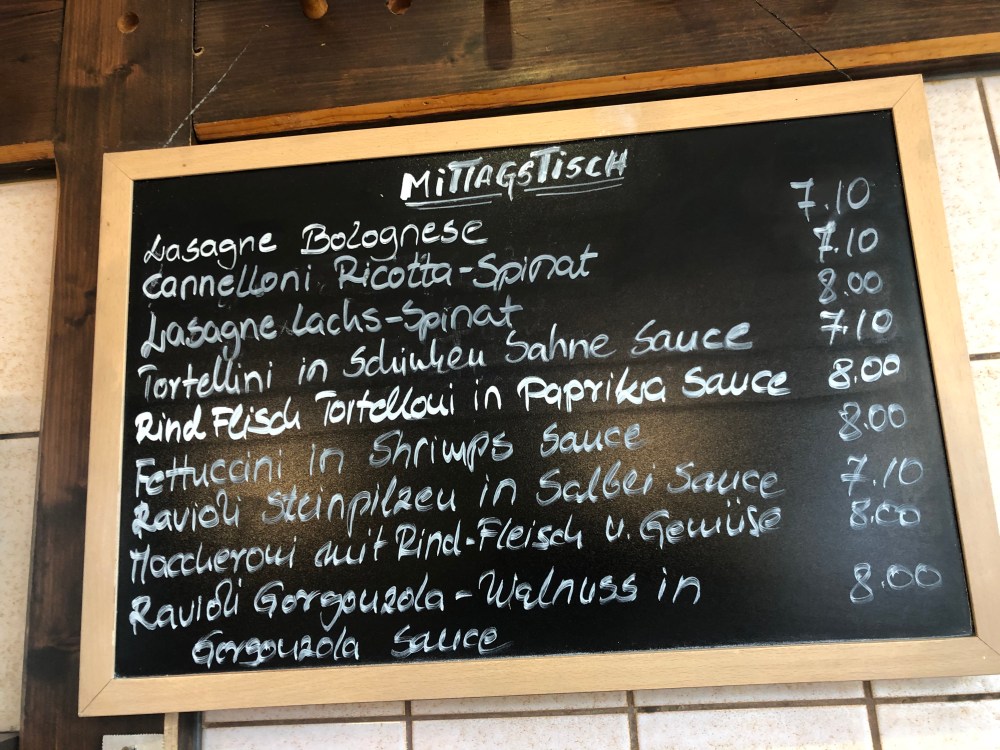 MiTTAGSTiSCH
Lasagne Bolognese 7.10
Cannelloni Ricotta-Spinat 7.10
Lasagne Lachs-Spinat 8.00
Tortellini in Schinken Sahne Sauce 7.10
Rind Flisch Tortelloni in Paprika Sauce 8.00
Fettuccini in Shrimps Sauce 8.00
Ravioli Steinpilzen in Salbei Sauce 7.10
Maccheroni mit Rind-Fleisch u. Gemüse 8.00
Ravioli Gorgonzola-Walnuss in 8.00
Gorgonzola Sauce